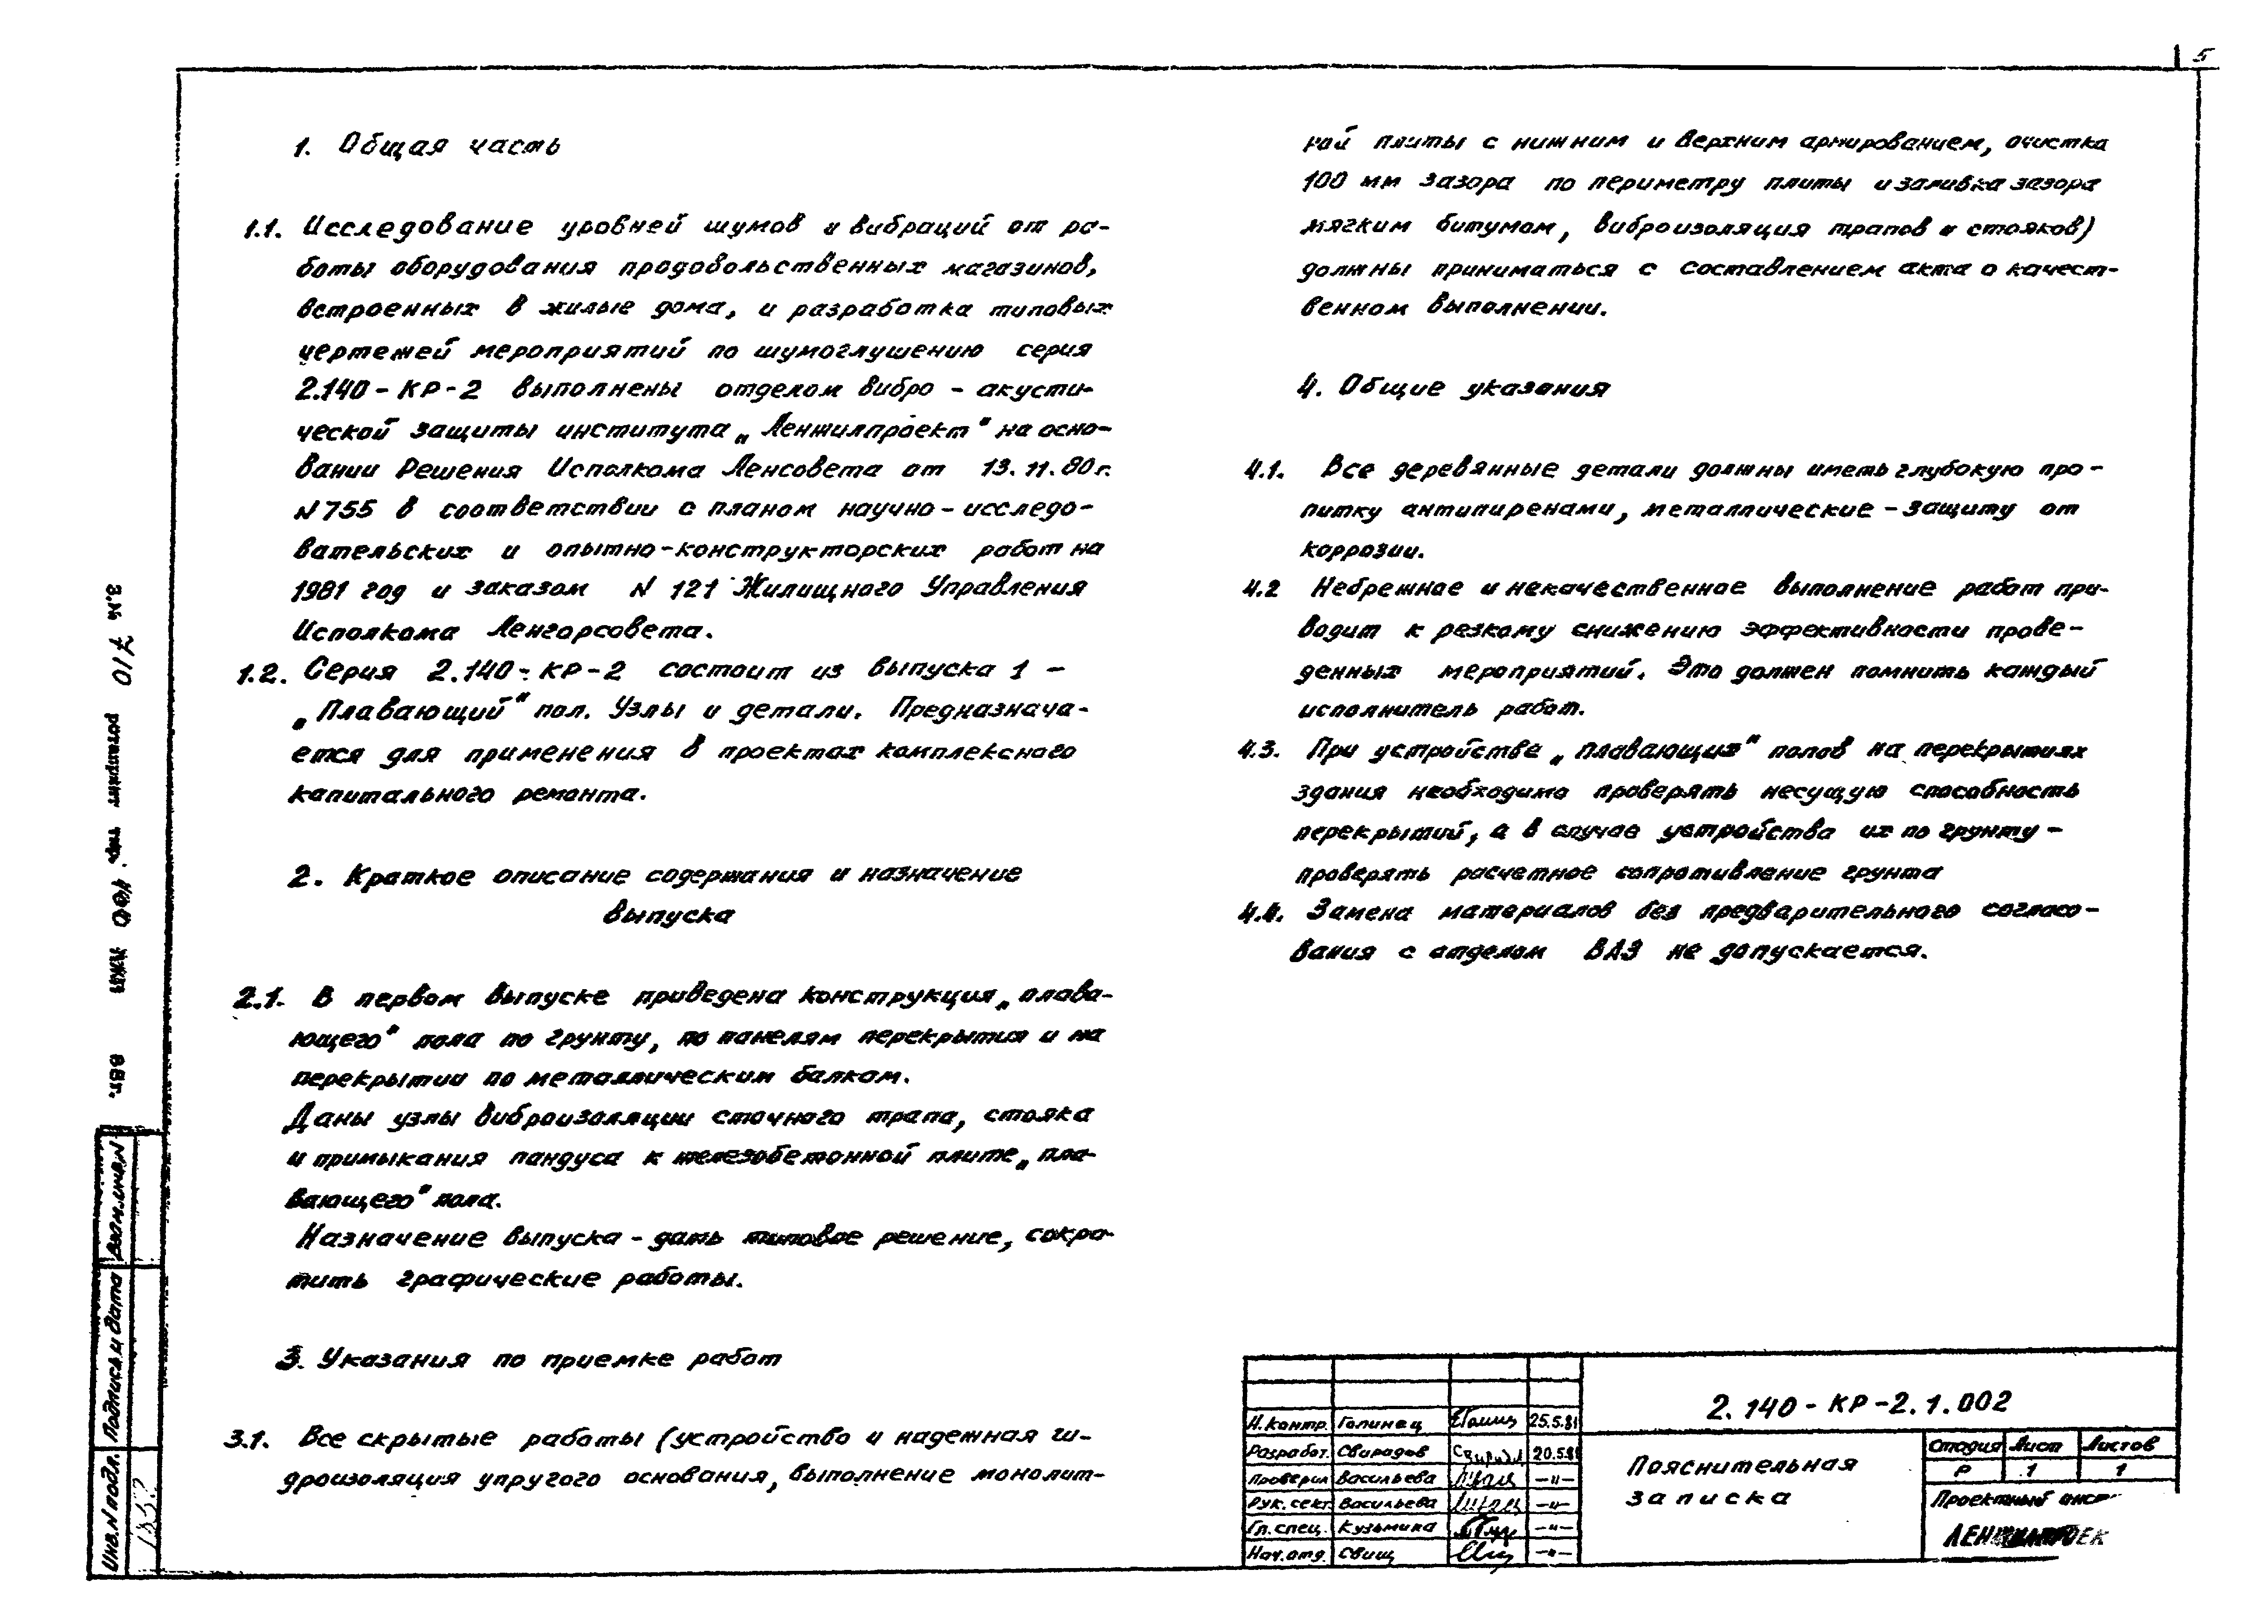 5
1. Общая часть
1.1. Исследование уровней шумов и вибраций от ра-
боты оборудования продовольственных магазинов,
встроенных в жилые дома, и разработка типовых
чертежей мероприятий по шумоглушению серия
2.140-КР-2 выполнены отделом вибро - акусти-
ческой защиты института „Ленжилпроект" на осно-
вании Решения Исполкома Ленсовета от 13.11.80г.
N755 в соответствии с планом научно-исследо-
вательских и опытно-конструкторских работ на
1981 год и заказом N 121 Жилищного Управления
Исполкома Ленгорсовета.
1.2. Серия 2.140-КР-2 состоит из выпуска 1 -
„Плавающий" пол. Узлы и детали. Предназнача-
ется для применения в проектах комплексного
капитального ремонта.
2. Краткое описание содержания и назначение
выпуска
2.1. В первом выпуске приведена конструкция „плава-
ющего" пола по грунту, по панелям перекрытия и на
перекрытии по металлическим балкам.
Даны узлы виброизоляции сточного трапа, стояка
и примыкания пандуса к железобетонной плите „пла-
вающего" пола.
Назначение выпуска - дать типовое решение, сокра-
тить графические работы.
3. Указания по приемке работ
3.1. Все скрытые работы (устройство и надежная ги-
дроизоляция упругого основания, выполнение монолит-
ной плиты с нижним и верхним армированием, очистка
100 мм зазора по периметру плиты и заливка зазора
мягким битумом, виброизоляция трапов и стояков)
должны приниматься с составлением акта о качест-
венном выполнении.
4. Общие указания
4.1. Все деревянные детали должны иметь глубокую про-
питку антипиренами, металлические - защиту от
коррозии.
4.2 Небрежное и некачественное выполнение работ при-
водит к резкому снижению эффективности прове-
денных мероприятий. Это должен помнить каждый
исполнитель работ.
4.3. При устройстве „плавающих" полов на перекрытиях
здания необходимо проверять несущую способность
перекрытий, а в случае устройства их по грунту -
проверять расчетное сопротивление грунта
4.4. Замена материалов без предварительного согласо-
вания с отделом ВАЗ не допускается.
З.№ 710 ротапринт тир. 400 ЛЖП 88г.
Взам.инв.N
Подпись и дата
Инв.N подл.
Н.контр. Галинец 25.5.81
Разработ. Свирадов 20.5.81
Проверил Васильева -"-
Рук.сект. Васильева -"-
Гл.спец. Кузьмина -"-
Нач.отд. Свищ -"-
2.140-КР-2.1.002
Пояснительная
записка
Стадия Лист Листов
Р 1 1
Проектный инст